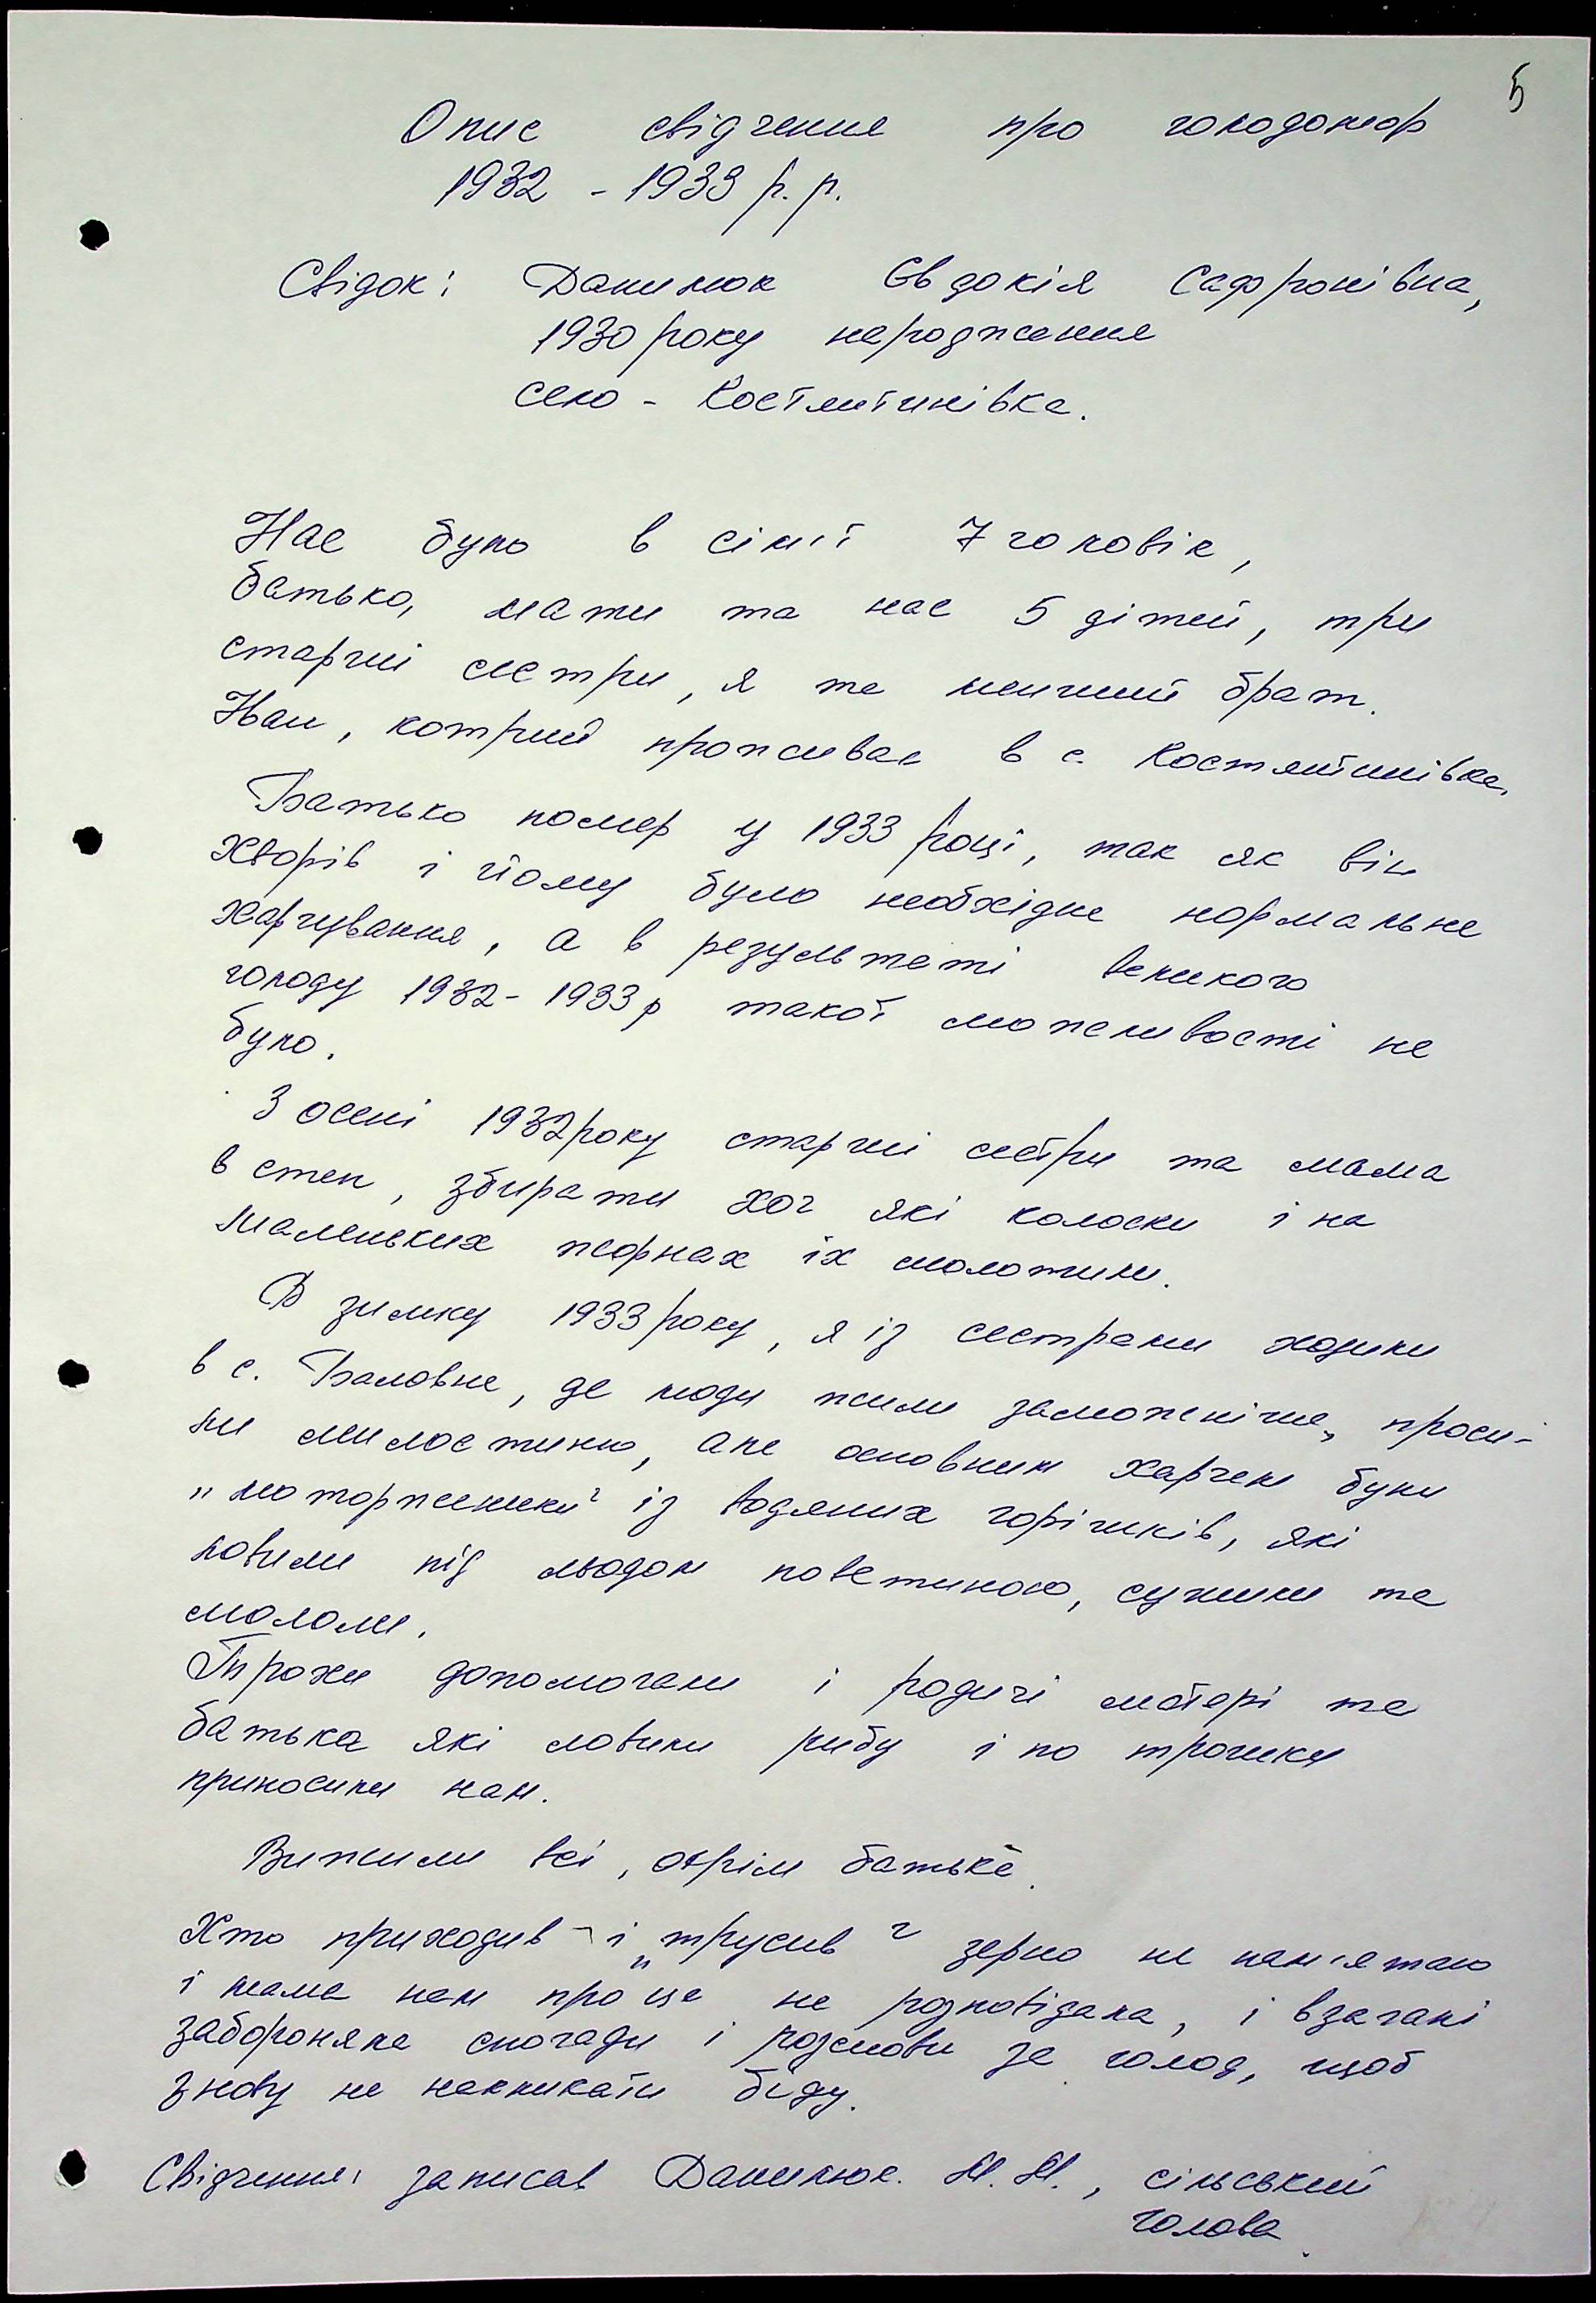 5
Опис свідчення про голодомор
1932 - 1933 р.р.
Свідок: Данилюк Євдокія Сафронівна,
1930 року народження
село - Костянтинівка.
Нас було в сім'ї 7 чоловік,
батько, мати та нас 5 дітей, три
старші сестри, я та менший брат.
Іван, котрий проживає в с. Костянтинівка.
Батько помер у 1933 році, так як він
хворів і йому було необхідне нормальне
харчування, а в результаті великого
голоду 1932-1933р такої можливості не
було.
З осені 1932 року старші сестри та мама
в степ, збирати хоч які колоски і на
маленьких жорнах їх молотили.
В зимку 1933 року, я із сестрами ходили
в с. Баловне, де люди жили заможніше, проси-
ли милостиню, але основним харчем були
„моторженики" із водяних горішків, які
ловили під льодом повстиною, сушили та
мололи.
Трохи допомогали і родичі матері та
батька які ловили рибу і по трошки
приносили нам.
Вижили всі, окрім батька.
Хто приходив і „трусив" зерно не пам'ятаю
і мама нам про це не розповідала, і взагалі
забороняла спогади і розмови за голод, щоб
знову не накликати біду.
Свідчення: записав Данилюк. М. М., сільський
голова